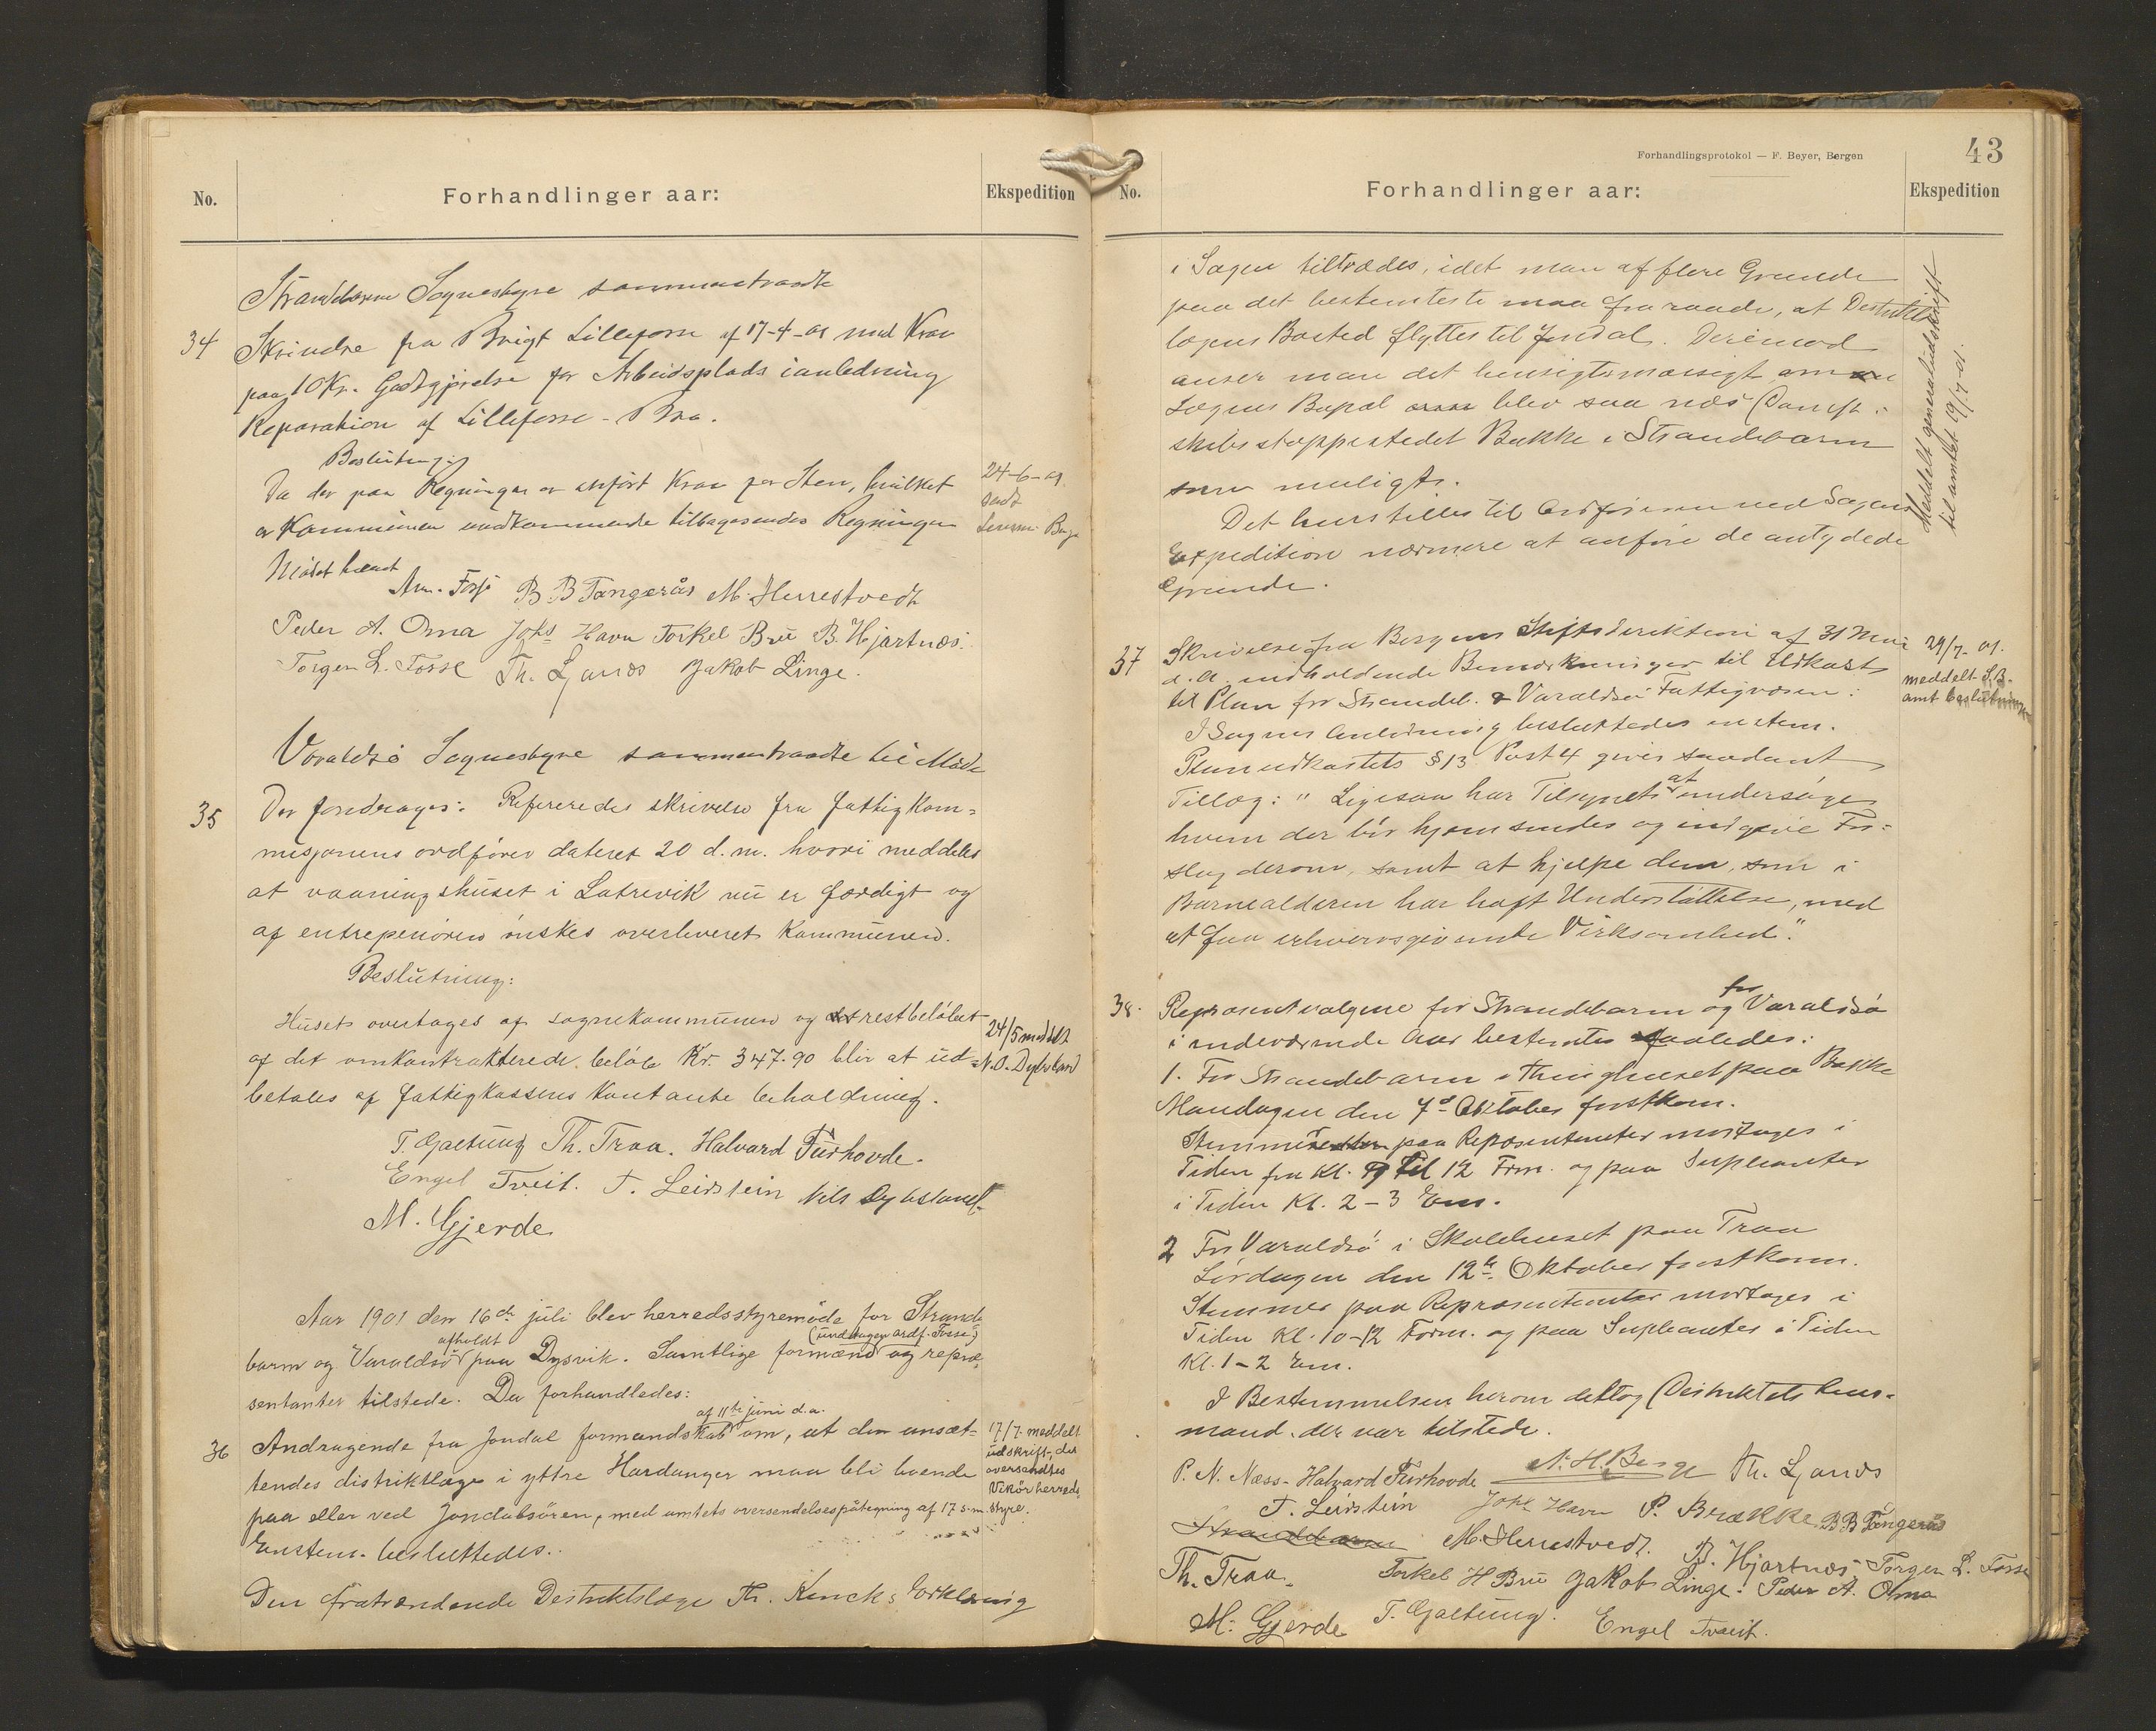 No.
Forhandlinger aar:
Ekspedition
Strandebarm Sognestyre sammentraadte
34 Skrivelse fra Brigt Lilleforse af 17-4-01 med Krav
paa 10 Kr. Godtgjörelse for Arbeidsplads i anledning
Reparation af Lilleforse-Bro.
Beslutning:
Da der paa Regningen er anfört Krav for Sten, hvilket
er Kommunen uvedkommende tilbagesendes Regningen
24-6-01
sendt
Mödet hævet
Am. Fosse B B Tangerås M. Herrestvedt
Peder A. Oma Johs Havn Torkel Bru B. Hjartnæs.
Torgen L. Fosse Th. Ljanæs Jakob Linge.
Varaldsö Sognestyre sammentraadte til Möde
35 Der foredroges: Refereredes skrivelse fra fattigkom=
misjonens ordförer dateret 20 d.m. hvori meddeles
at vaaningshuset i Latrevik nu er færdigt og
af entrepenören önskes overleveret Kommunen.
Beslutning:
Huset overtages af sognekommunen og restbelöbet
af det omkontrakterede belöb Kr. 347.90 blir at ud=
betales af fattigkassens kontante beholdning.
24/5 meddelt
N.O. Dybsland
T. Gaetung Th. Traa. Halvard Furhovde.
Engel Tveit. T. Leirstein Nils Dybsland.
M. Gjerde
Aar 1901 den 16de juli blev herredsstyremöde for Strande
afholdt (undtagen ordf. Fosse)
barm og Varaldsö paa Dysvik. Samtlige formænd og repræ=
sentanter tilstede. Da forhandledes:
af 11te juni d.a.
36 Andragende fra Jondal formandskab om, at den ansæt=
tendes distriktlæge i yttre Hardanger maa bli boende
paa eller ved Jondalsören, med amtets oversendelsespåtegning af 17 s.m.
Enstem. besluttedes..
17/7. meddelt
udskrift, det
oversendtes
Vikör herreds
styre.
Den fratrædende Destriktslæge Th. Kincks Erklæring
Forhandlingsprotokol — F. Beyer, Bergen
43
No.
Forhandlinger aar:
Ekspedition
i Sagen tiltrædes, idet man af flere Grunde
paa det bestemteste maa fraraade, at Destrikts
lægens Bosted flyttes til Jondal. Derimod
anser man det hensigtsmæssigt, om
Lægens Bopæl blev saa nær Damp=
skibsstoppestedet Bakke i Strandebarm
som muligt.
Det henstilles til Ordföreren ved Sagens
Expedition nærmere at anföre de antydede
Grunde.
Meddelt genpartudskrift
til amtet 19/7-01.
37 Skrivelse fra Bergens Stiftsdirektion af 31 Mai
d.A. indholdende Bemærkninger til Udkast
til Plan for Strandeb. & Varaldsö Fattigvæsen:
I Sagens Anledning besluttedes enstem.
Planudkastets §13 Post 4 gives saadant
Tillæg: "Ligesaa har Tilsynet at undersöge
hvem der bör hjemsendes og indgive For=
slag derom, samt at hjelpe dem, som i
Barnealderen har havt Understöttelse, med
at faa erhvervsgivende Virksomhed."
29/7-01.
meddelt S.B.
amt beslutningen
38. Repræsentvalgene for Strandebarm og for Varaldsö
i indeværende Aar bestemtes saaledes:
1. For Strandebarm i Thinghuset paa Bakke
Mandagen den 7de Oktober förstkom.
Stemmer paa Repræsentanter modtages i
Tiden fra Kl. 9 til 12 Form. og paa Supleanter
i Tiden Kl. 2-3 Em.
2 For Varaldsö i Skolehuset paa Traa
Lördagen den 12te Oktober förstkomm.
Stemmer paa Repræsentanter modtages i
Tiden Kl. 10-12 Form. og paa Supleanter i Tiden
Kl. 1-2 Em.
I Bestemmelsen herom deltog Destriktets Lens=
mand. der var tilstede.
P. N. Næss. Halvard Furhovde N. H. Berge Th. Ljanæs
T. Leirstein Johs Havn P. Brække B B Tangerås
Strandebarm M. Herrestvedt. B. Hjartnæs. Torgen L. Fosse
Th. Traa. Torkel H Bru Jakob Linge. Peder A. Oma
M. Gjerde T. Gaetung. Engel Tveit.